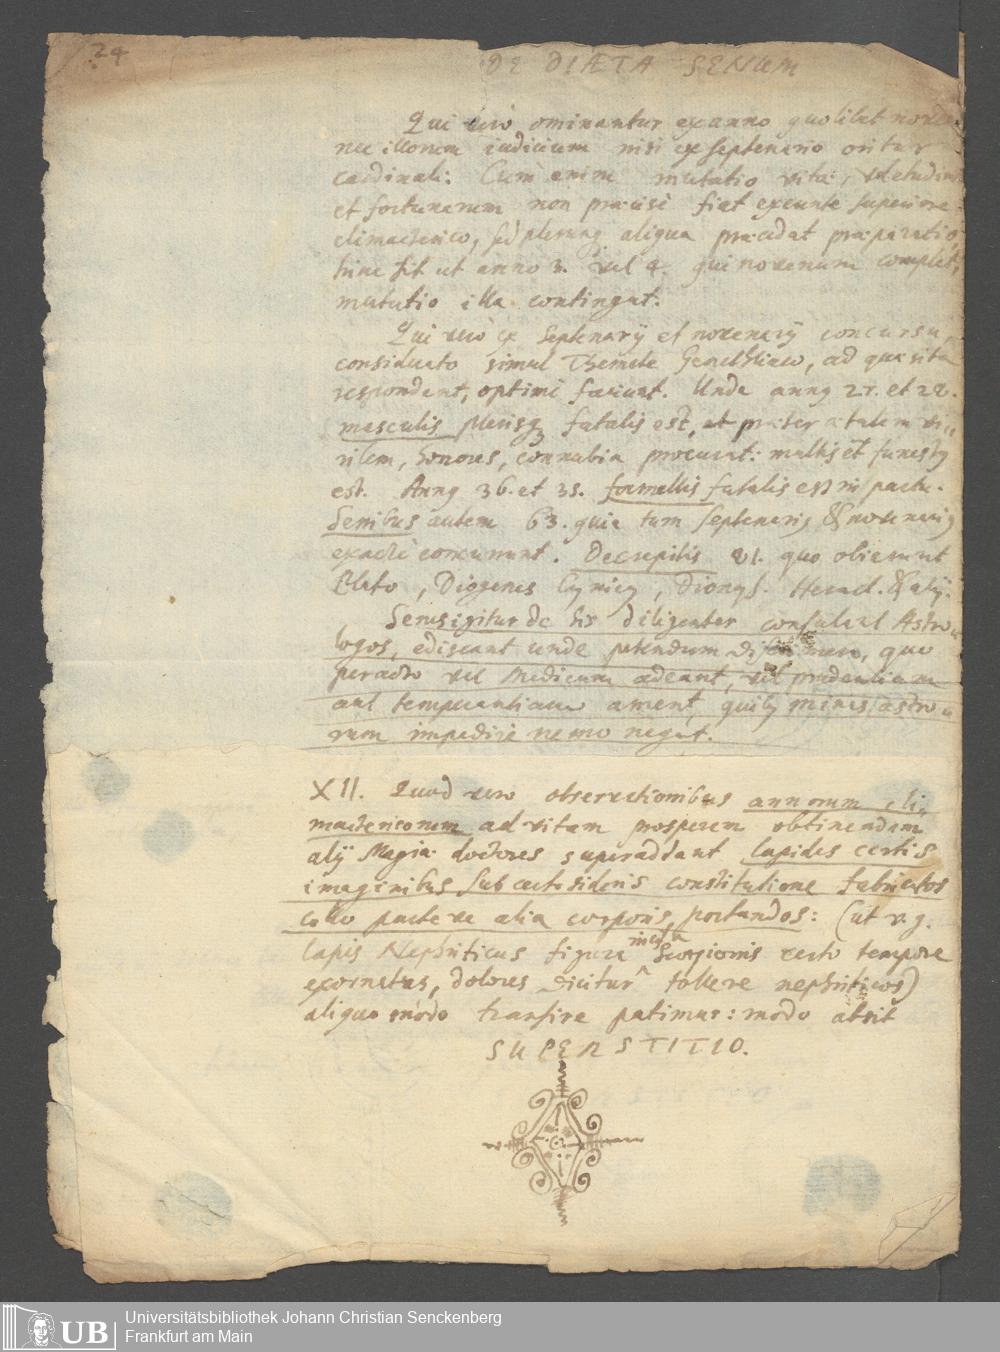 24
DE DIÆTA SENUM
Qui verò ominantur ex anno quolibet noven
nec illorum iudicium nisi ex septenario oritur
cardinali: Cùm enim mutatio vitæ, valetudinis
et fortunarum non præcisè fiat exeunte superiore
climacterico, sed plerunq aliqua præcedat præparatio,
hinc fit ut anno 3. vel 4. qui novenum complet,
mutatio illa contingat.
Qui verò ex Septenarij et novenarij concursu,
considerato simul Themate Genethliaco, ad quæsita
respondent, optimè faciunt. Unde annus 27. et 28.
masculis plerisq fatalis est, et præter ætatem vi-
rilem, honores, connubia procurat: multis et funestus
est. Annus 36. et 35. foemellis fatalis est in partu.
Senibus autem 63. quia tum septenarius & novenarius
exactè concurrunt. Decrepitis 81. quo obierunt
Plato, Diogenes Cynicus, Dionys. Heracl. & alij.
Senes igitur de his diligenter consulant Astro-
logos, ediscant unde petendum discrimen, quo
peracto vel Medicum adeant, vel prudentiam
aut temperantiam ament, quibus minas astro-
rum impedire nemo negat.
XII. Quod vero observationibus annorum cli-
mactericorum ad vitam prosperam obtinendam
alij Magiæ doctores superaddant lapides certis
imaginibus sub certo sideris constitutione fabricatos
collo parte ve alia corporis, portandos: (ut v. g.
lapis Nephriticus figura Scorpionis certo tempore
exornatus, dolores dicitur ^ tollere nephriticos)
aliquo modo transire patimur: modo absit
SUPERSTITIO.
UB
Universitätsbibliothek Johann Christian Senckenberg
Frankfurt am Main